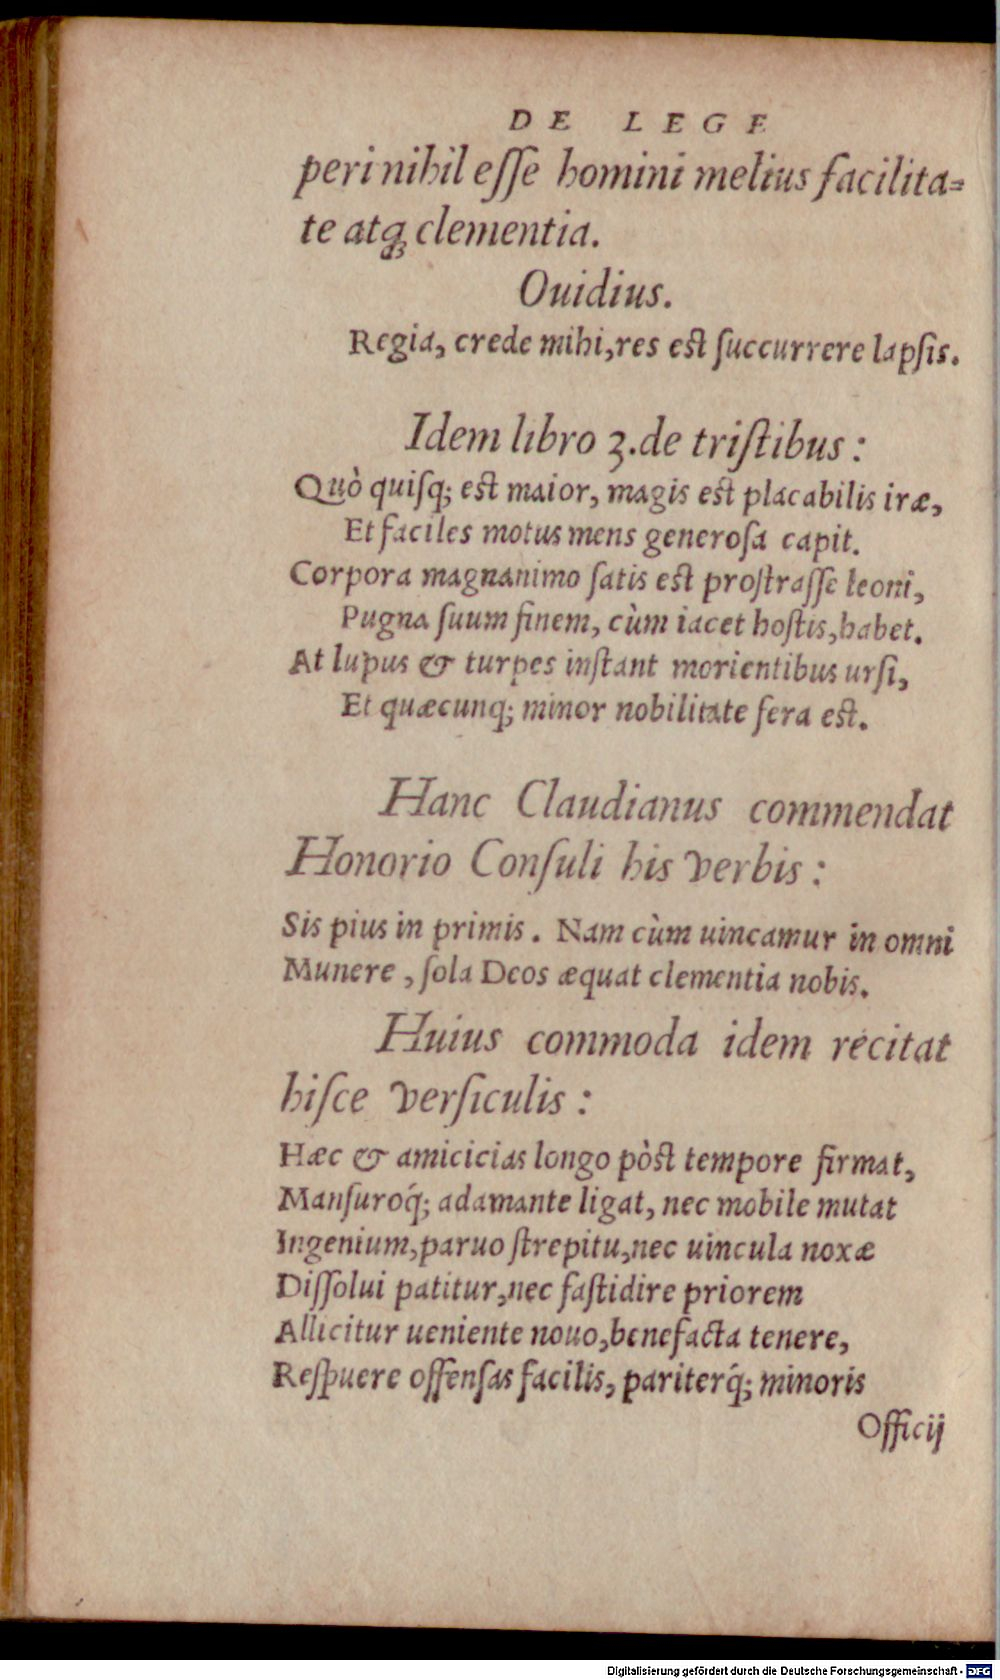 DE LEGE
peri nihil eſſe homini melius facilita⸗
te atq́ꝫ clementia.
Ouidius.
Regia, crede mihi, res eſt ſuccurrere lapſis.
Idem libro 3. de triſtibus :
Quò quiſq; eſt maior, magis eſt placabilis iræ,
Et faciles motus mens generoſa capit.
Corpora magnanimo ſatis eſt proſtraſſe leoni,
Pugna ſuum finem, cùm iacet hoſtis, habet.
At lupus & turpes inſtant morientibus urſi,
Et quæcunq; minor nobilitate fera eſt.
Hanc Claudianus commendat
Honorio Conſuli his verbis :
Sis pius in primis. Nam cùm uincamur in omni
Munere, ſola Deos æquat clementia nobis.
Huius commoda idem recitat
hiſce verſiculis :
Hæc & amicicias longo pòſt tempore firmat,
Manſuroq́; adamante ligat, nec mobile mutat
Ingenium, paruo ſtrepitu, nec uincula noxæ
Diſſolui patitur, nec faſtidire priorem
Allicitur ueniente nouo, benefacta tenere,
Reſpuere offenſas facilis, pariterq́; minoris
Officij
Digitalisierung gefördert durch die Deutsche Forschungsgemeinschaft - DFG